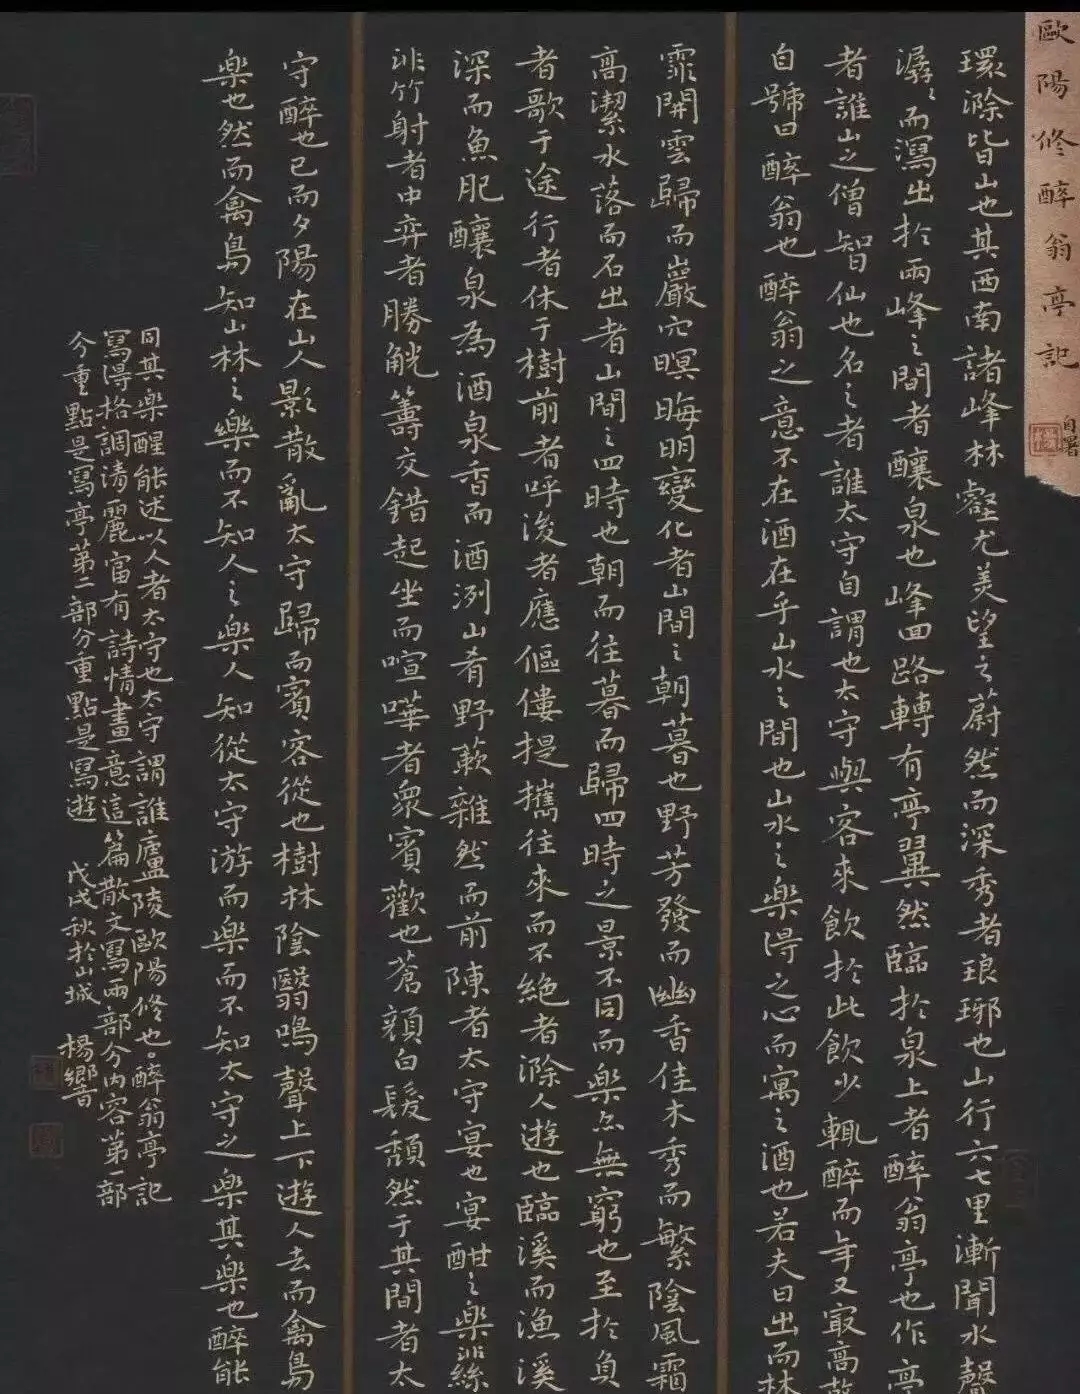 歐陽修醉翁亭記
自署
環滁皆山也其西南諸峰林壑尤美望之蔚然而深秀者琅琊也山行六七里漸聞水聲
潺潺而瀉出於兩峰之間者釀泉也峰回路轉有亭翼然臨於泉上者醉翁亭也作亭
者誰山之僧智仙也名之者誰太守自謂也太守與客來飲於此飲少輒醉而年又最高故
自號曰醉翁也醉翁之意不在酒在乎山水之間也山水之樂得之心而寓之酒也若夫日出而林
霏開雲歸而巖穴暝晦明變化者山間之朝暮也野芳發而幽香佳木秀而繁陰風霜
高潔水落而石出者山間之四時也朝而往暮而歸四時之景不同而樂亦無窮也至於負
者歌于途行者休于樹前者呼後者應傴僂提攜往來而不絕者滁人遊也臨溪而漁溪
深而魚肥釀泉為酒泉香而酒洌山肴野蔌雜然而前陳者太守宴也宴酣之樂非絲
非竹射者中弈者勝觥籌交錯起坐而喧嘩者衆賓歡也蒼顏白髮頹然于其間者太
守醉也已而夕陽在山人影散亂太守歸而賓客從也樹林陰翳鳴聲上下遊人去而禽鳥
樂也然而禽鳥知山林之樂而不知人之樂人知從太守游而樂而不知太守之樂其樂也醉能
同其樂醒能述以人者太守也太守謂誰廬陵歐陽修也。醉翁亭記
寫得格調清麗富有詩情畫意這篇散文寫兩部分內容第一部
分重點是寫亭第二部分重點是寫遊 戊戌秋於山城 楊鄉音